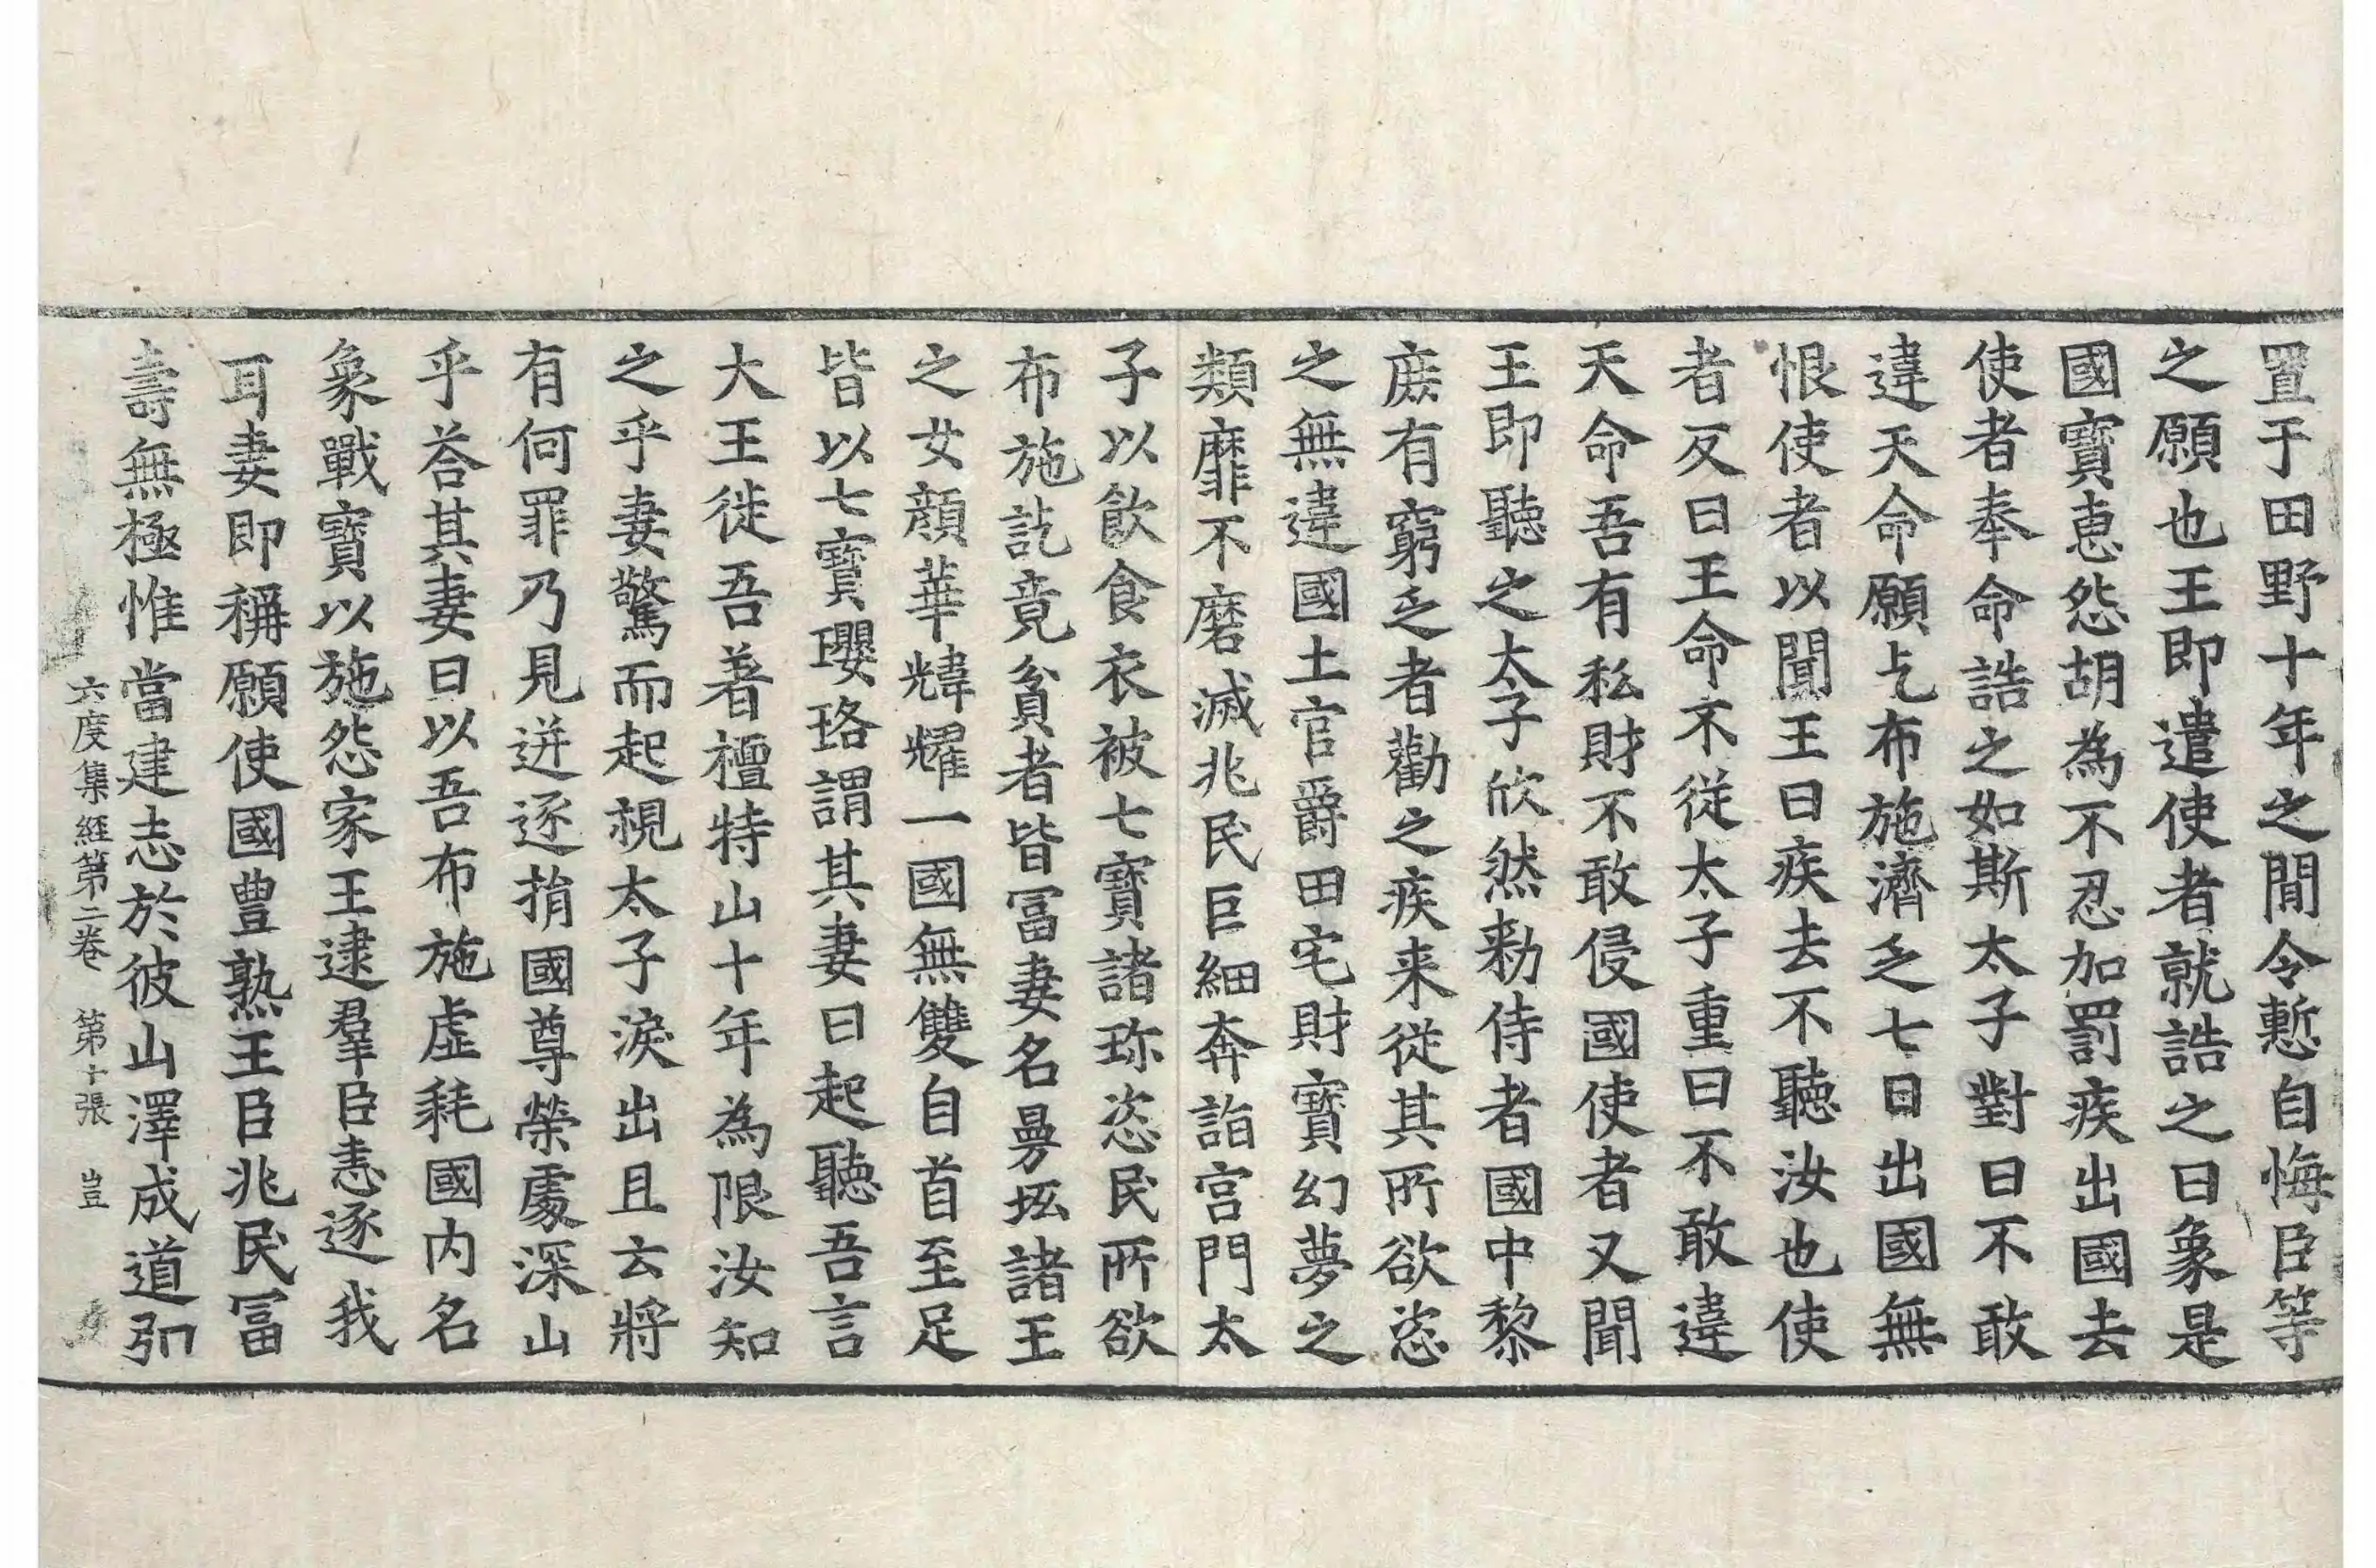 置于田野十年之間令慙自悔臣等
之願也王即遣使者就誥之曰象是
國寶惠怨胡為不忍加罰疾出國去
使者奉命誥之如斯太子對曰不敢
違天命願乞布施濟乏七日出國無
恨使者以聞王曰疾去不聽汝也使
者反曰王命不從太子重曰不敢違
天命吾有私財不敢侵國使者又聞
王即聽之太子欣然勑侍者國中黎
庶有窮乏者勸之疾来從其所欲恣
之無違國土官爵田宅財寶幻夢之
類靡不磨滅兆民巨細奔詣宮門太
子以飲食衣被七寶諸珎恣民所欲
布施訖竟貧者皆冨妻名曼坻諸王
之女顏華煒耀一國無雙自首至足
皆以七寶瓔珞謂其妻曰起聽吾言
大王徙吾著檀特山十年為限汝知
之乎妻驚而起視太子淚出且云將
有何罪乃見迸逐捐國尊榮處深山
乎荅其妻曰以吾布施虛耗國内名
象戰寶以施怨家王逮羣臣恚逐我
耳妻即稱願使國豊熟王臣兆民冨
壽無極惟當建志於彼山澤成道弘
六度集経第二卷 第十張 豈